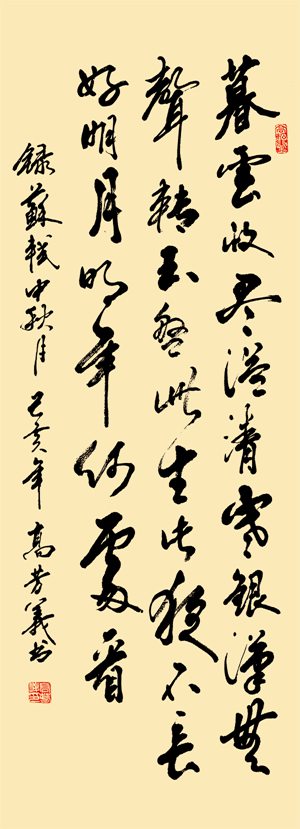 暮雲收盡溢清寒銀漢無
聲轉玉盤此生此夜不長
好明月明年何處看
錄蘇軾中秋月 己亥年 高芳義书